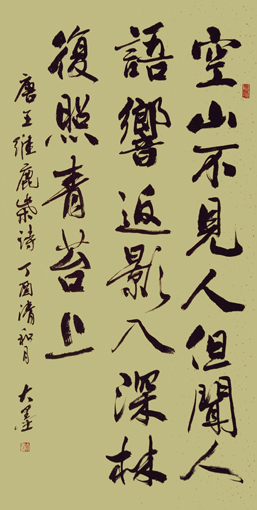 空山不見人但聞人
語響返影入深林
復照青苔上
唐王維鹿柴詩 丁酉清和月 大墨